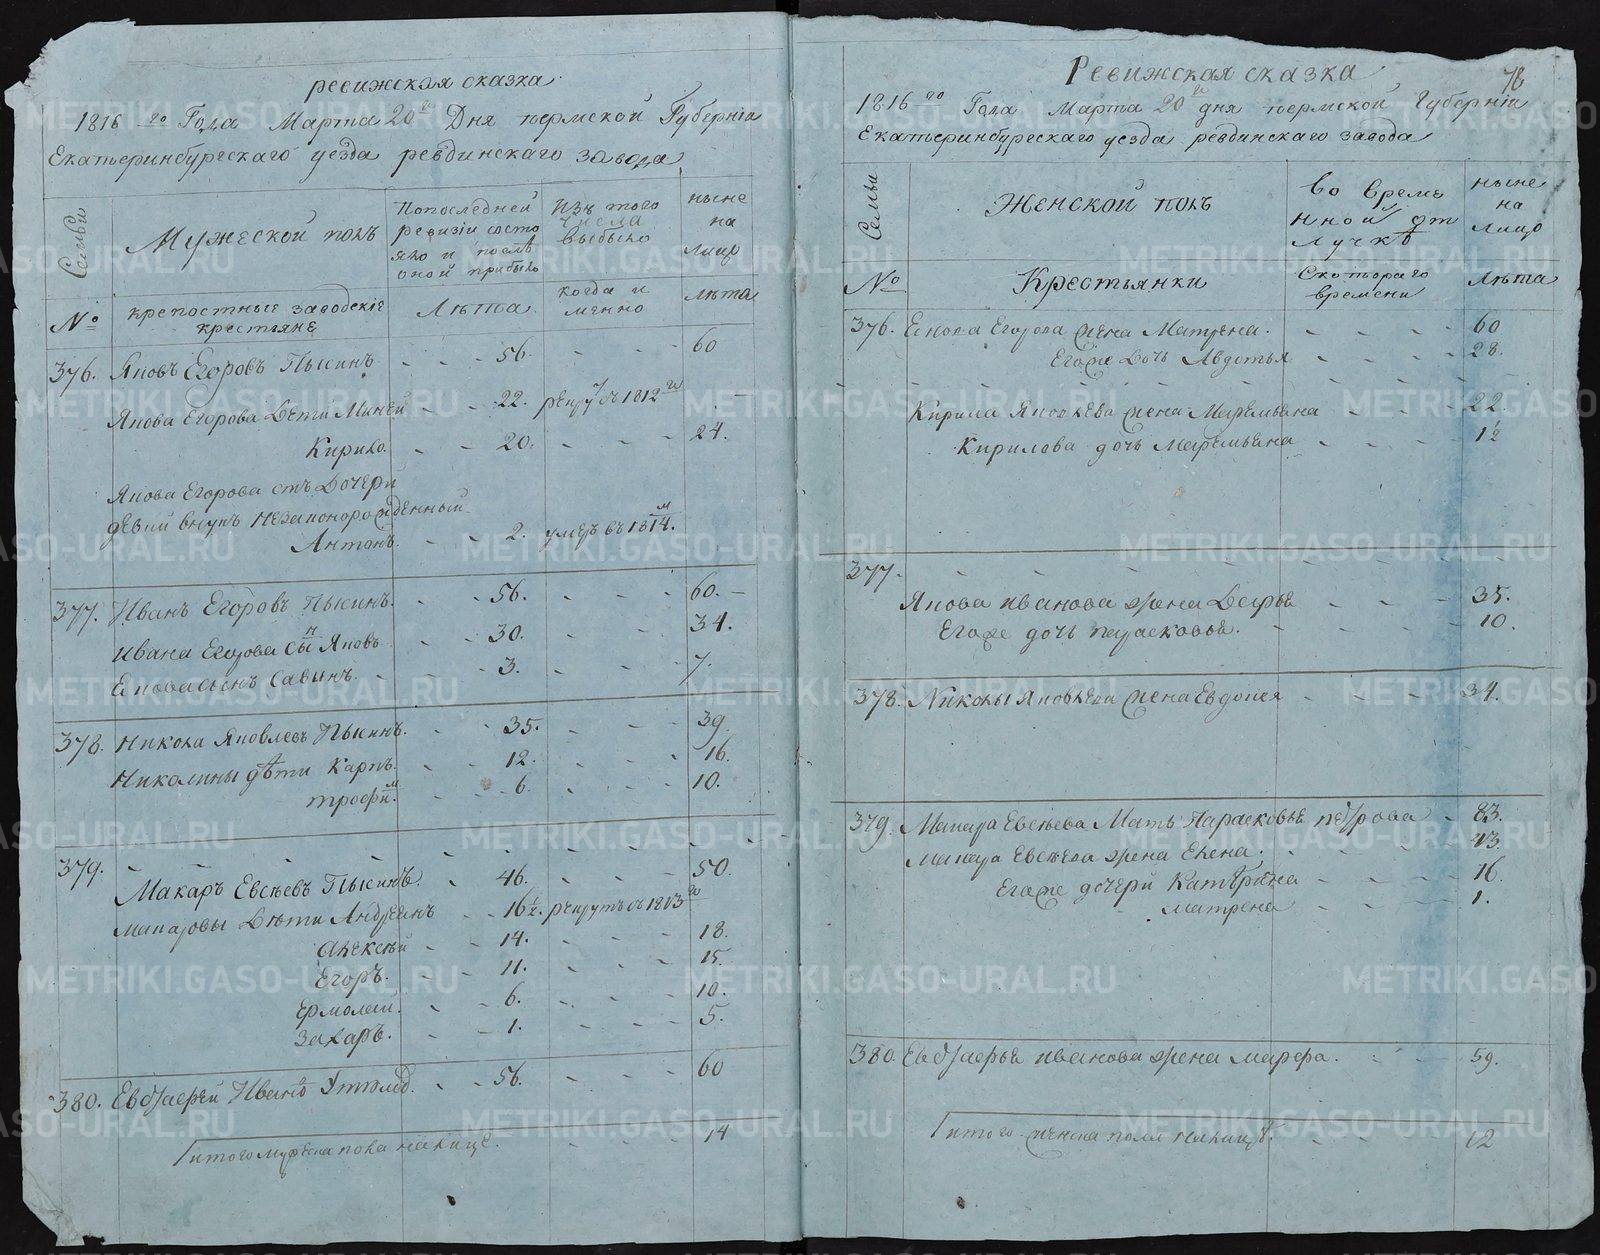 ревижская сказка
1816 го Года Марта 20 го Дня пермской Губернiи
Екатеринбургскаго уезда ревдинскаго завода
Семьи
Мужеской полъ
Попоследней ревизiи состо яло и послѣ оной прибыло
Изъ того числа выбыло
ныне на лицо
№
крепостные заводскiе крестьяне
Лѣта
когда и менно
лѣта
376. Яковъ Егоровъ Пысинъ - - 56. - - 60
Якова Егорова Дети Миней - - 22. рекрутъ 1812 го
Кирило. - - 20. - - 24.
Якова Егорова отъ Дочери
девки внукъ незаконорожденный
Антонъ. - - 2. умеръ въ 1814.м
377. Иванъ Егоровъ Пысинъ. - - 56. - - 60. -
Ивана Егорова Сынъ Яковъ - - 30. - - 34.
Якова сынъ Савинъ. - - 3. - - 7.
378. Никола Яковлевъ Пысинъ. - - 35. - - 39.
Николины дѣти Карпъ. - - 12. - - 16.
трофим. - - 6. - - 10.
379. Макаръ Евсѣевъ Пысинъ. - 46. - - 50.
Макаровы Дѣти Андреянъ - - 16½. рекрутъ 1813 го
Алексѣй - - 14. - - 18.
Егоръ. - - 11. - - 15.
Ермолай. - - 6. - - 10.
Захаръ. - - 1. - - 5.
380. Иванъ - - 56. - - 60
итого мужска пола налице. - - 14
78
Ревижская сказка
1816 го Года Марта 20 го дня пермской Губернiи
Екатеринбургскаго уезда ревдинскаго завода
Семьи
Женской полъ
во времѣ нной от лучкѣ
ныне на лицо
№
Крестьянки
Скотораго времени
Лѣта
376. Якова Егорова жена Матрена. - - 60
Егоже Дочь Авдотья - - 28.
Кирила Яковлева жена Маремьяна - - 22.
Кирилова дочь Маремьяна - - 1½
377.
Якова иванова жена - - 35.
Егоже дочь парасковья. - - 10.
378. Николы Яковлева жена Евдокея - - 34.
379. Макара Евсѣева Мать Парасковья петрова - 83.
Макара Евсѣева жена Елена. - - 43.
Егоже дочери Катерина - - 16.
матрена - - 1.
380. иванова жена марфа. - - 59.
итого женска пола налицѣ. - - 12
METRIKI.GASO-URAL.RU